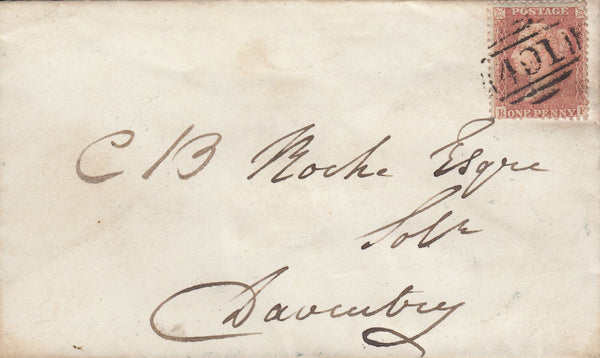 POSTAGE
ONE PENNY
C B Roche Esqre
Solr
Daventry